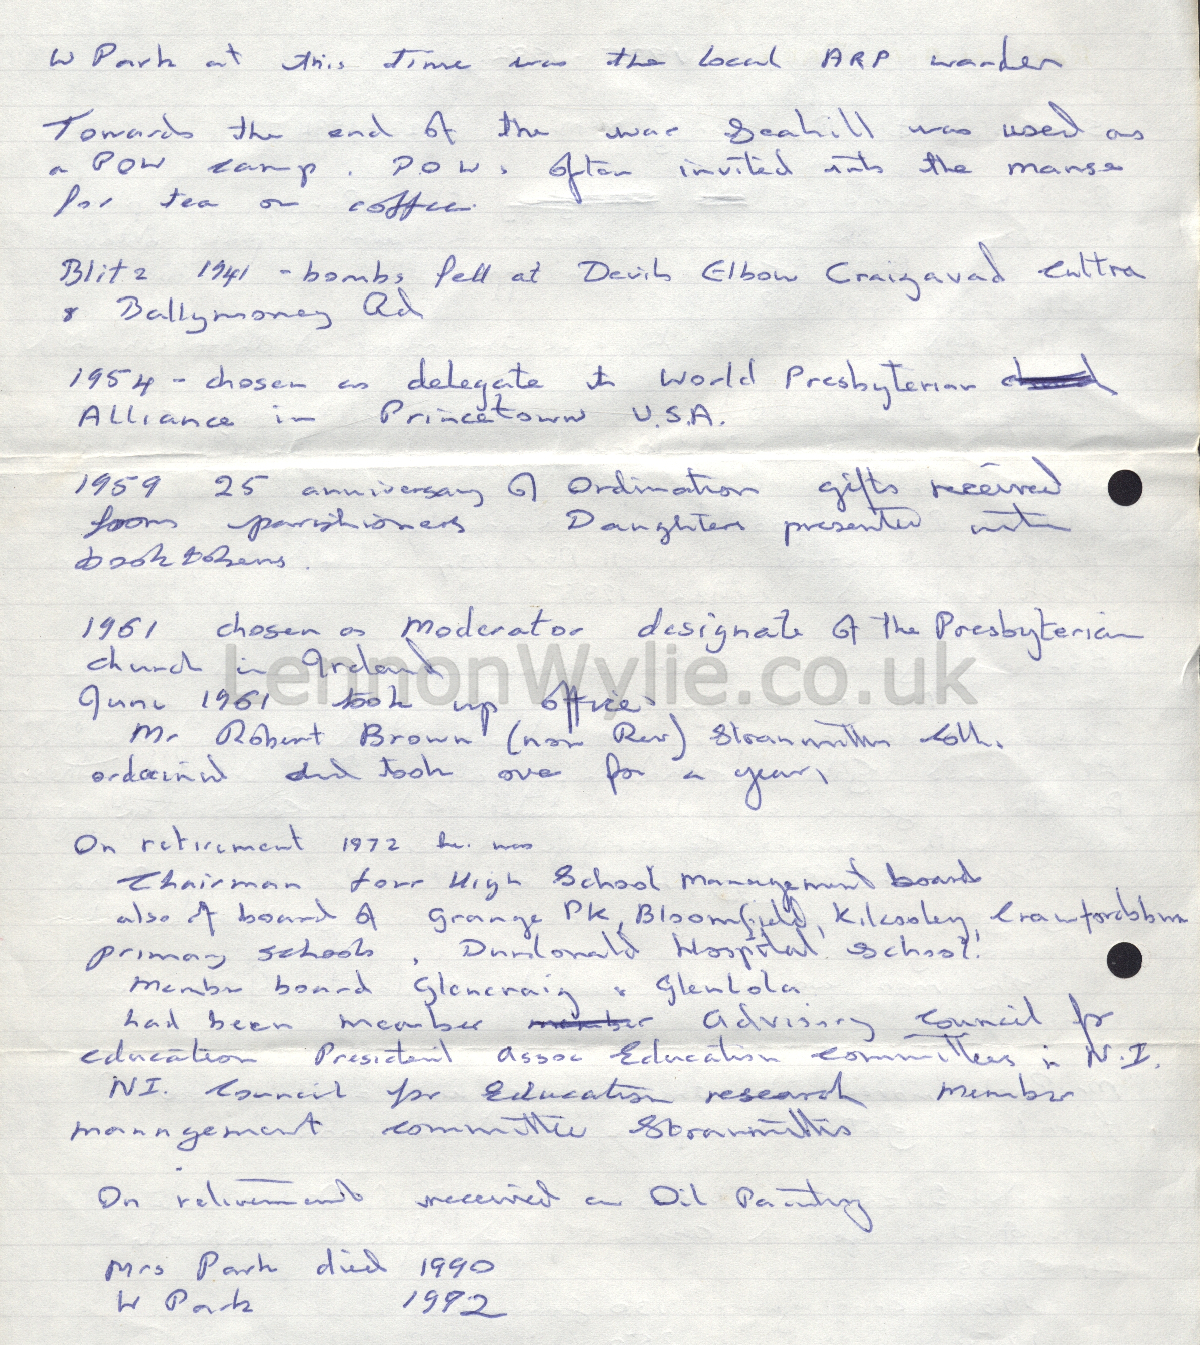 W Park at this time was the local ARP warden
Towards the end of the war Seahill was used as
a POW camp. P.O.W.s often invited into the manse
for tea or coffee.
Blitz 1941 - bombs fell at Devils Elbow Craigavad Cultra
& Ballymoney Rd
1954 - chosen as delegate to World Presbyterian
Alliance in Princetown U.S.A.
1959 25 anniversary of Ordination gifts received
from parishioners Daughters presented with
book tokens.
1961 chosen as Moderator designate of the Presbyterian
church in Ireland
LennonWylie.co.uk
June 1961 took up office.
Mr Robert Brown (now Rev) Stranmillis Coll.
ordained and took over for a year,
On retirement 1972 he was
Chairman Torr High School Management board
also of board of Grange Pk, Bloomfield, Kilcooley, Crawfordsburn
primary schools, Dundonald Hospital School.
Member board Glencraig & Glenlola
had been member member Advisory Council for
education President Assoc Education committees in N.I.
N.I. Council for Education research Member
management committee Stranmillis
On retirement received an Oil Painting
Mrs Park died 1990
W Park 1992